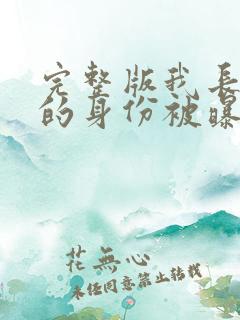 完整版我长
的身份被曝
花無心
未经同意禁止转载